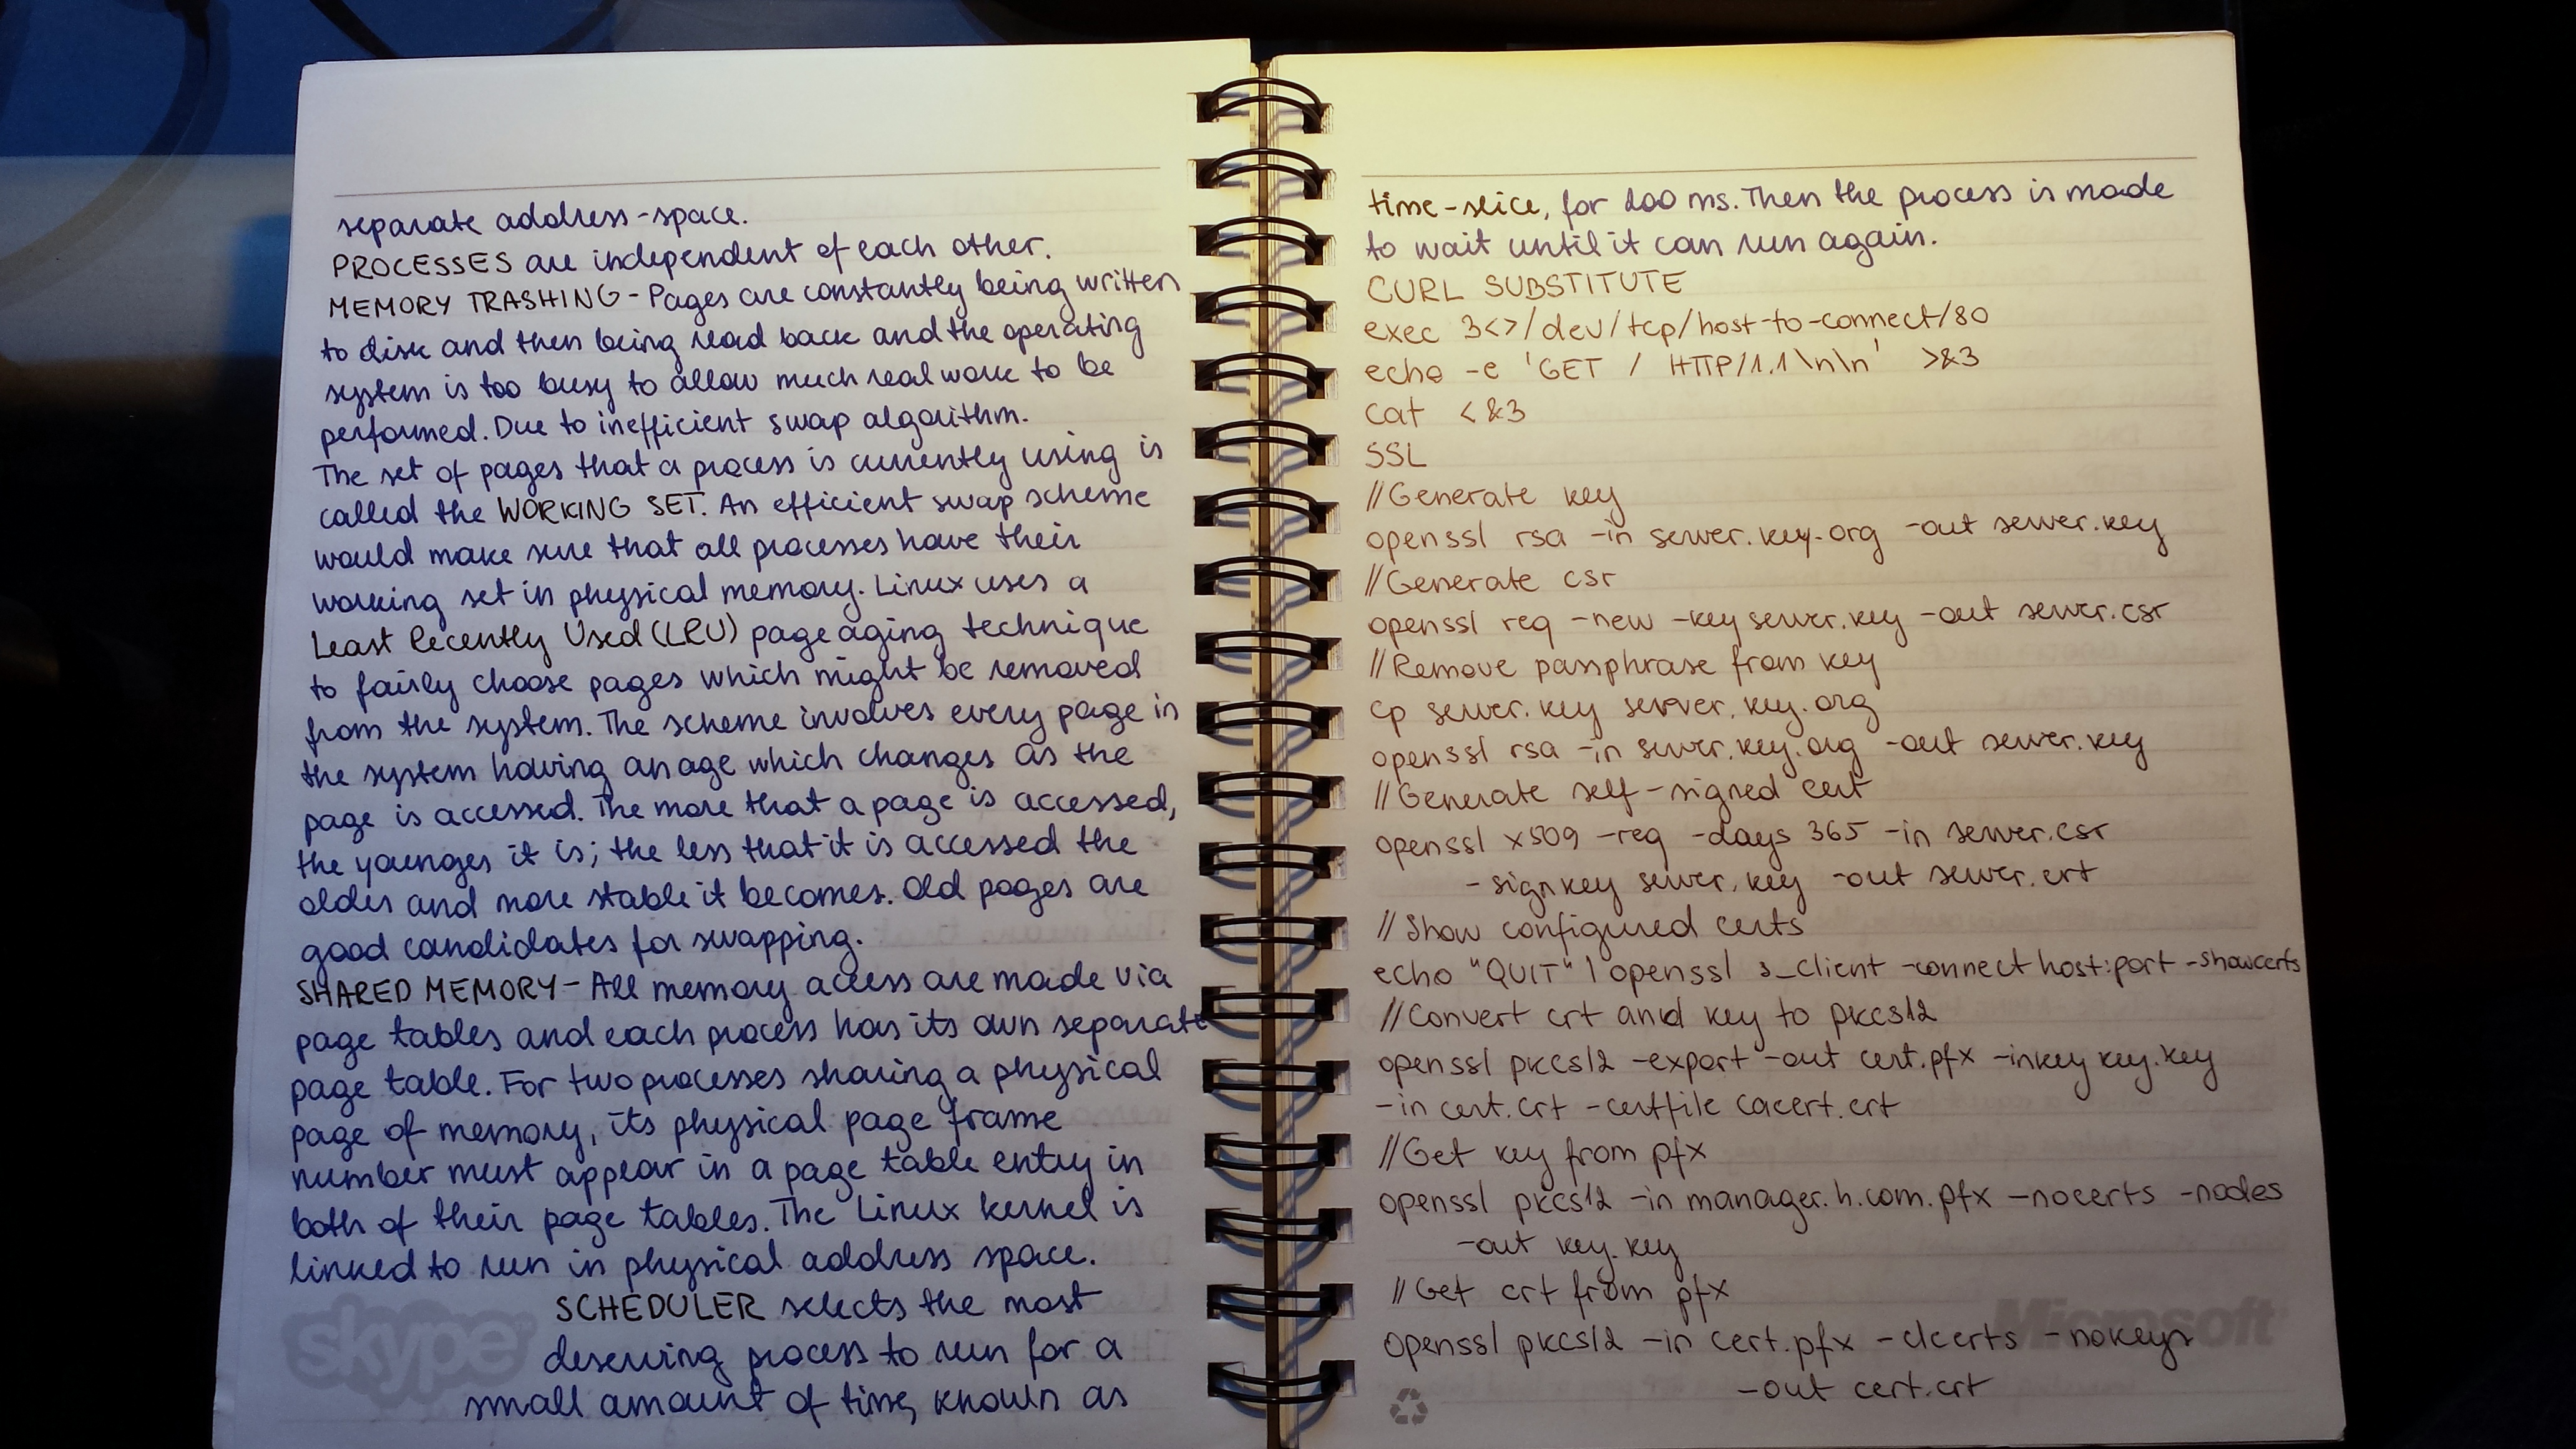 separate address-space.
PROCESSES are independent of each other.
MEMORY TRASHING - Pages are constantly being written
to disk and then being read back and the operating
system is too busy to allow much real work to be
performed. Due to inefficient swap algorithm.
The set of pages that a process is currently using is
called the WORKING SET. An efficient swap scheme
would make sure that all processes have their
working set in physical memory. Linux uses a
Least Recently Used (LRU) page aging technique
to fairly choose pages which might be removed
from the system. The scheme involves every page in
the system having an age which changes as the
page is accessed. The more that a page is accessed,
the younges it is; the less that it is accessed the
older and more stable it becomes. Old pages are
good candidates for swapping.
SHARED MEMORY - All memory access are made via
page tables and each process has its own separate
page table. For two processes sharing a physical
page of memory, its physical page frame
number must appear in a page table entry in
both of their page tables. The Linux kernel is
linked to run in physical address space.
SCHEDULER selects the most
deserving process to run for a
small amount of time, known as
skype™
time-slice, for 200 ms. Then the process is made
to wait until it can run again.
CURL SUBSTITUTE
exec 3<>/dev/tcp/host-to-connect/80
echo -e 'GET / HTTP/1.1\n\n' >&3
cat <&3
SSL
//Generate key
openssl rsa -in server.key.org -out server.key
//Generate csr
openssl req -new -key server.key -out server.csr
//Remove passphrase from key
cp server.key server.key.org
openssl rsa -in server.key.org -out server.key
//Generate self-signed cert
openssl x509 -req -days 365 -in server.csr
-signkey server.key -out server.crt
//Show configured certs
echo "QUIT" | openssl s_client -connect host:port -showcerts
//Convert crt and key to pkcs12
openssl pkcs12 -export -out cert.pfx -inkey key.key
-in cert.crt -certfile cacert.crt
//Get key from pfx
openssl pkcs12 -in manager.h.com.pfx -nocerts -nodes
-out key.key
//Get crt from pfx
openssl pkcs12 -in cert.pfx -clcerts -nokeys
-out cert.crt
Microsoft